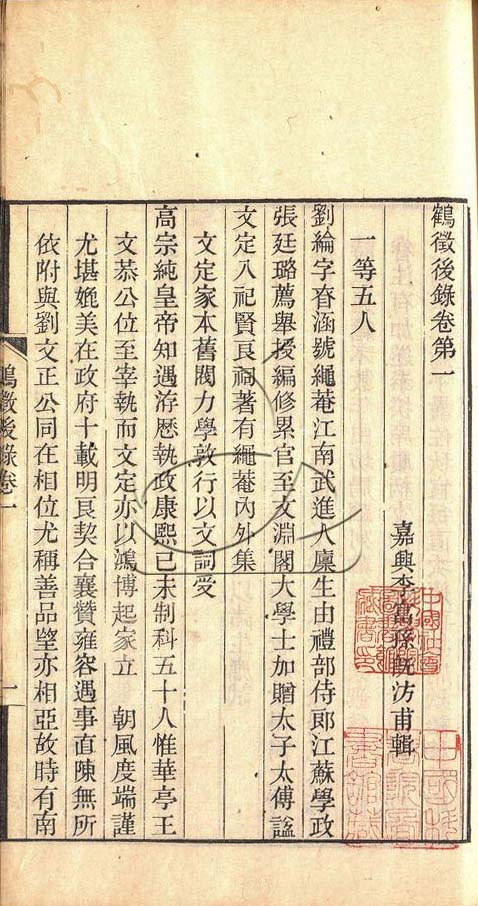 鶴徵後錄卷第一
嘉興李富孫旣汸甫輯
一等五人
劉綸字脊涵號繩菴江南武進人廩生由禮部侍郎江蘇學政
張廷璐薦舉授編修累官至文淵閣大學士加贈太子太傅諡
文定入祀賢良祠著有繩菴內外集
文定家本舊閥力學敦行以文詞受
高宗純皇帝知遇洊歷執政康熙己未制科五十人惟華亭王
文恭公位至宰執而文定亦以鴻博起家立　朝風度端謹
尤堪媲美在政府十載明良契合襄贊雍容遇事直陳無所
依附與劉文正公同在相位尤稱善品望亦相亞故時有南
鶴徵後錄卷一
一